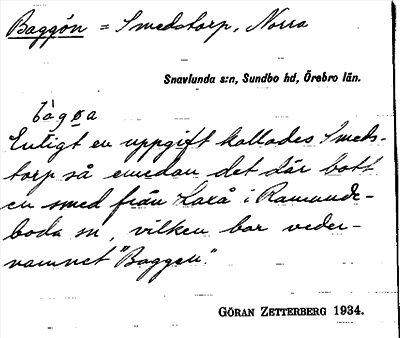 Baggön = Smedstorp, Norra
Snavlunda s:n, Sundbo hd, Örebro län.
bàgøa
Enligt en uppgift kallades Smeds-
torp så emedan det där bott
en smed från Laxå i Ramunde-
boda sn, vilken bar veder-
namnet "Baggen".
GÖRAN ZETTERBERG 1934.